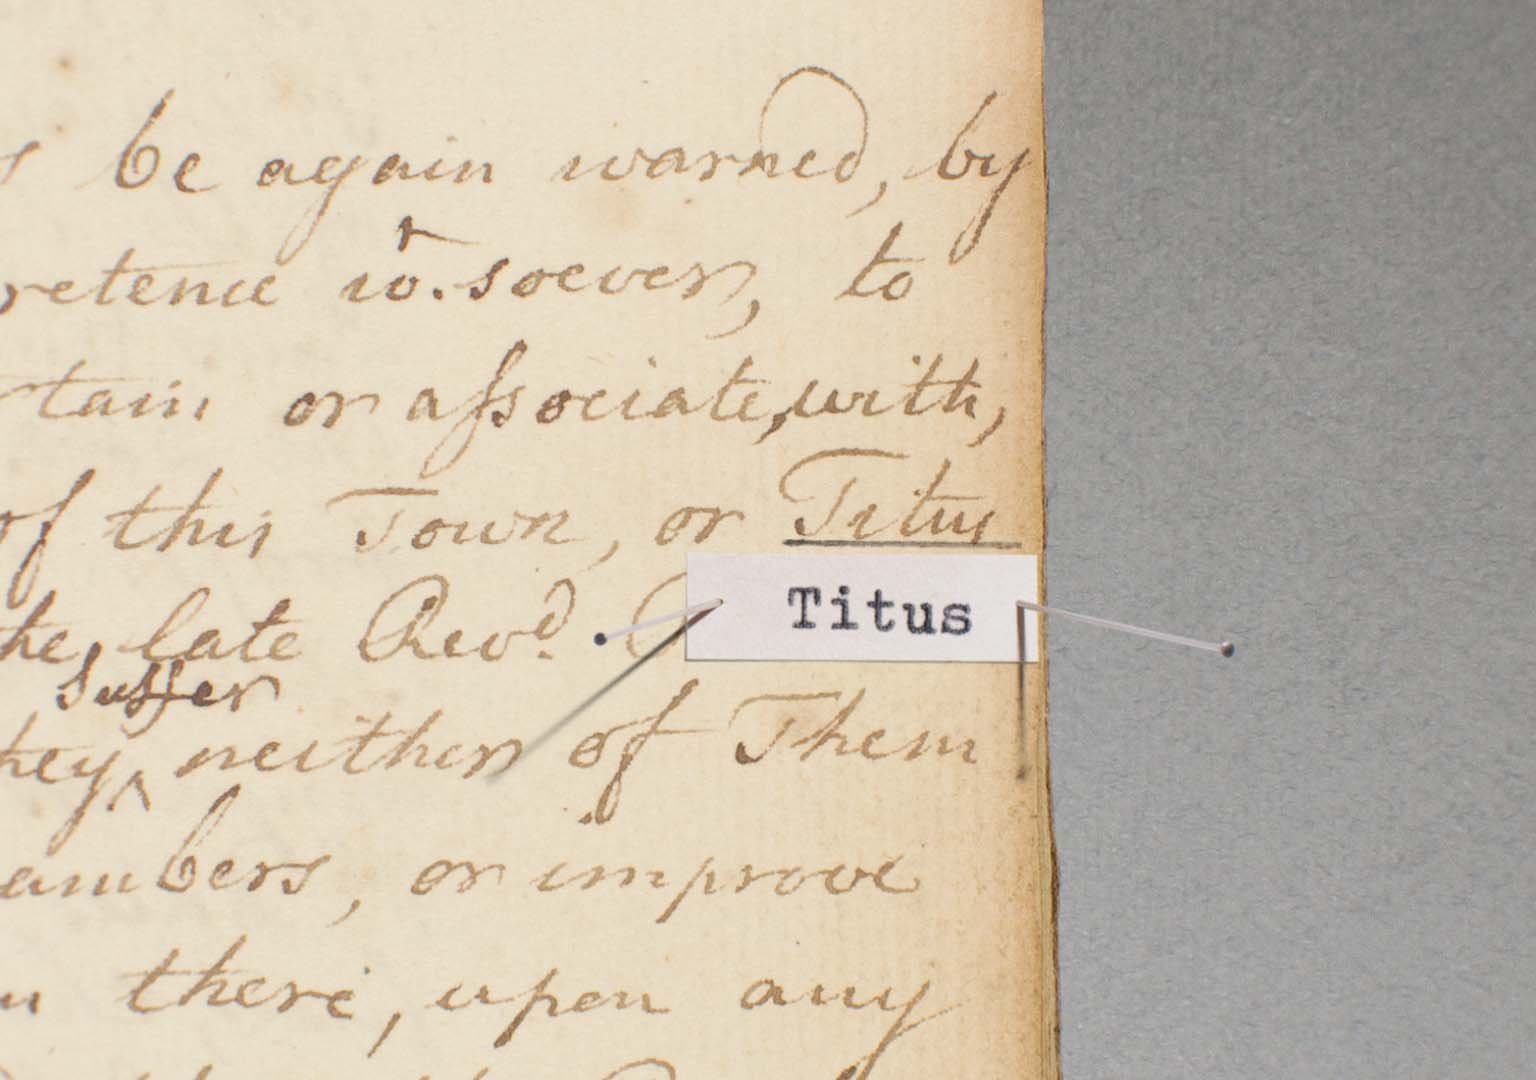 be again warned, by
retence wt. soever, to
tain or associate, with,
of this Town, or Titus
Titus
the late Revd.
suffer
they ^ neither of Them
ambers, or improve
there, upon any